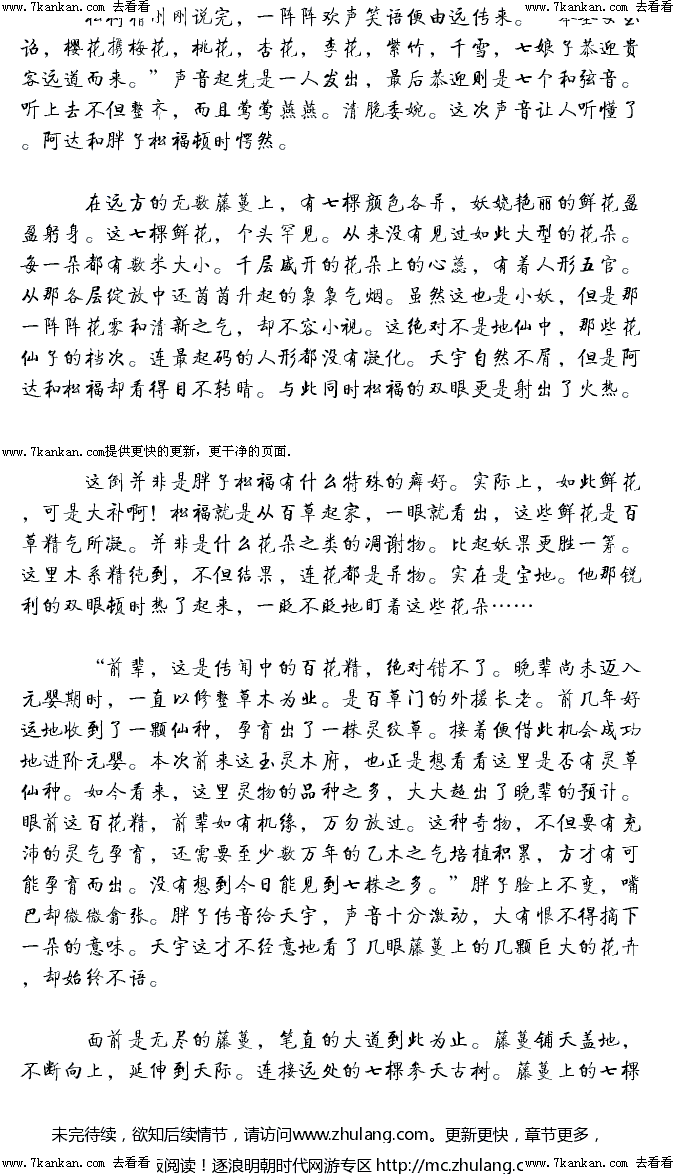 www.7kankan.com 去看看 www.7kankan.com 去看看
松树精刚刚说完，一阵阵欢声笑语便由远传来。
诏，樱花携梅花，桃花，杏花，李花，紫竹，千雪，七娘子恭迎贵
客远道而来。”声音起先是一人发出，最后恭迎则是七个和弦音。
听上去不但整齐，而且莺莺燕燕。清脆委婉。这次声音让人听懂了
。阿达和胖子松福顿时愕然。
在远方的无数藤蔓上，有七棵颜色各异，妖娆艳丽的鲜花盈
盈躬身。这七棵鲜花，个头罕见。从来没有见过如此大型的花朵。
每一朵都有数米大小。千层盛开的花朵上的心蕊，有着人形五官。
从那各层绽放中还茵茵升起的袅袅气烟。虽然这也是小妖，但是那
一阵阵花雾和清新之气，却不容小视。这绝对不是地仙中，那些花
仙子的档次。连最起码的人形都没有凝化。天宇自然不屑，但是阿
达和松福却看得目不转睛。与此同时松福的双眼更是射出了火热。
www.7kankan.com提供更快的更新，更干净的页面.
这倒并非是胖子松福有什么特殊的癖好。实际上，如此鲜花
，可是大补啊！松福就是从百草起家，一眼就看出，这些鲜花是百
草精气所凝。并非是什么花朵之类的凋谢物。比起妖果更胜一筹。
这里木系精纯到，不但结果，连花都是异物。实在是宝地。他那锐
利的双眼顿时热了起来，一眨不眨地盯着这些花朵……
“前辈，这是传闻中的百花精，绝对错不了。晚辈尚未迈入
元婴期时，一直以修整草木为业。是百草门的外援长老。前几年好
运地收到了一颗仙种，孕育出了一株灵纹草。接着便借此机会成功
地进阶元婴。本次前来这玉灵木府，也正是想看看这里是否有灵草
仙种。如今看来，这里灵物的品种之多，大大超出了晚辈的预计。
眼前这百花精，前辈如有机缘，万勿放过。这种奇物，不但要有充
沛的灵气孕育，还需要至少数万年的乙木之气培植积累，方才有可
能孕育而出。没有想到今日能见到七株之多。”胖子脸上不变，嘴
巴却微微翕张。胖子传音给天宇，声音十分激动，大有恨不得摘下
一朵的意味。天宇这才不经意地看了几眼藤蔓上的几颗巨大的花卉
，却始终不语。
面前是无尽的藤蔓，笔直的大道到此为止。藤蔓铺天盖地，
不断向上，延伸到天际。连接远处的七棵参天古树。藤蔓上的七棵
未完待续，欲知后续情节，请访问www.zhulang.com。更新更快，章节更多，
www.7kankan.com 去看看 阅读！逐浪明朝时代网游专区 http://mc.zhulang.com www.7kankan.com 去看看